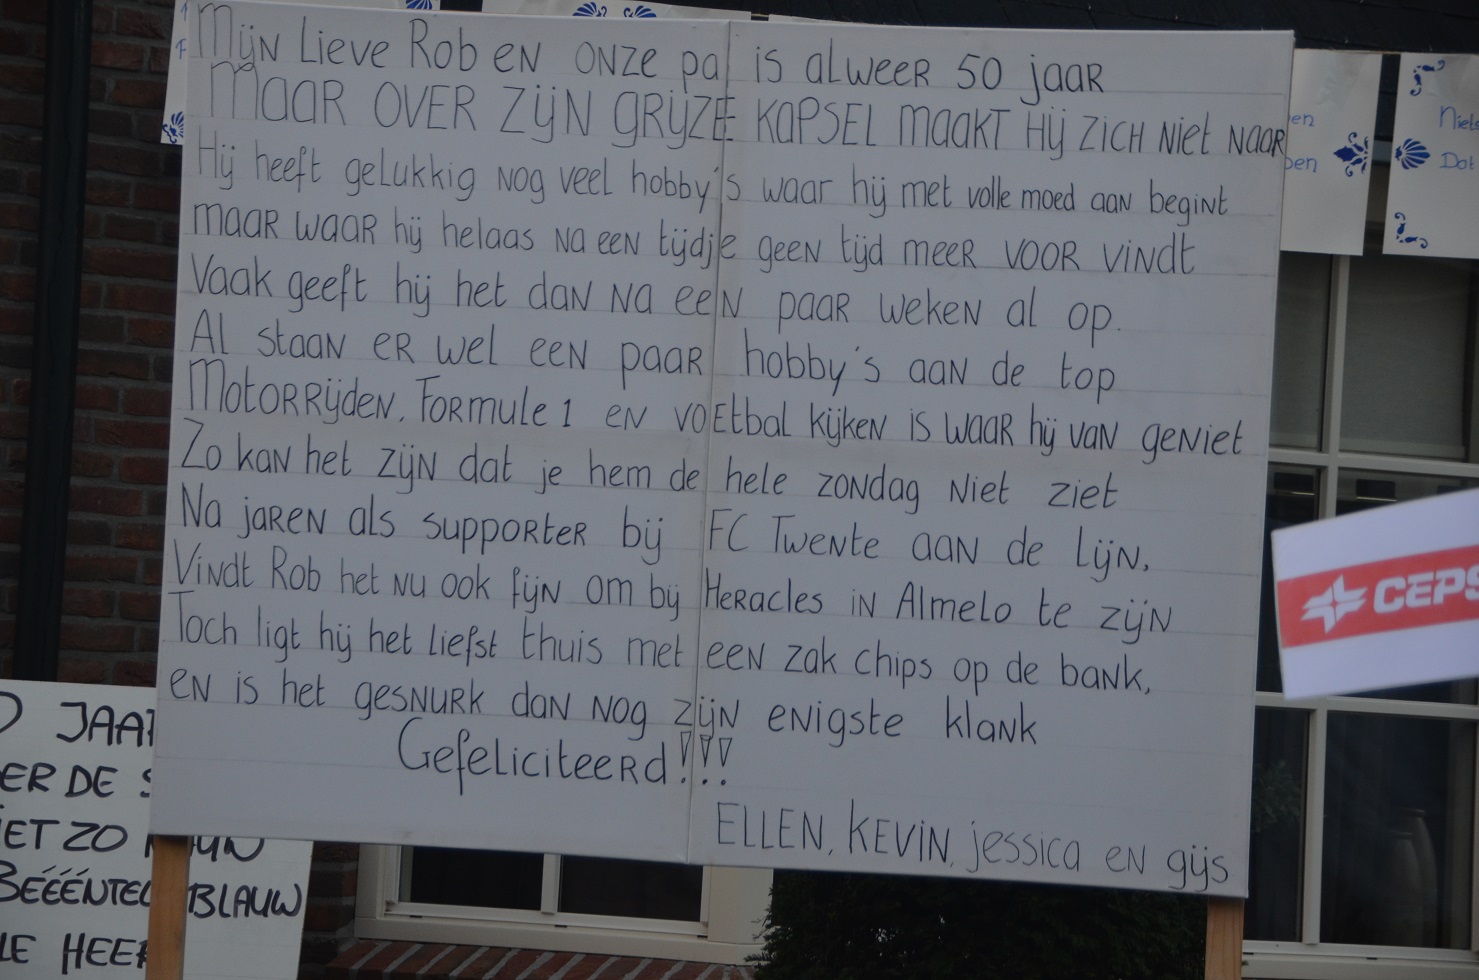 Mijn Lieve Rob en onze pa is alweer 50 jaar
Maar over zijn grijze kapsel maakt hij zich niet naar
Hij heeft gelukkig nog veel hobby's waar hij met volle moed aan begint
maar waar hij helaas na een tijdje geen tijd meer voor vindt
Vaak geeft hij het dan na een paar weken al op.
Al staan er wel een paar hobby's aan de top
Motorrijden, Formule 1 en voetbal kijken is waar hij van geniet
Zo kan het zijn dat je hem de hele zondag niet ziet
Na jaren als supporter bij FC Twente aan de lijn,
Vindt Rob het nu ook fijn om bij Heracles in Almelo te zijn
Toch ligt hij het liefst thuis met een zak chips op de bank,
en is het gesnurk dan nog zijn enigste klank
Gefeliciteerd!!!
ELLEN, KEVIN, jessica en gijs
JAAR
ER DE
IET ZO
BLAUW
LE HEER
CEPS
en
Niels
Dat